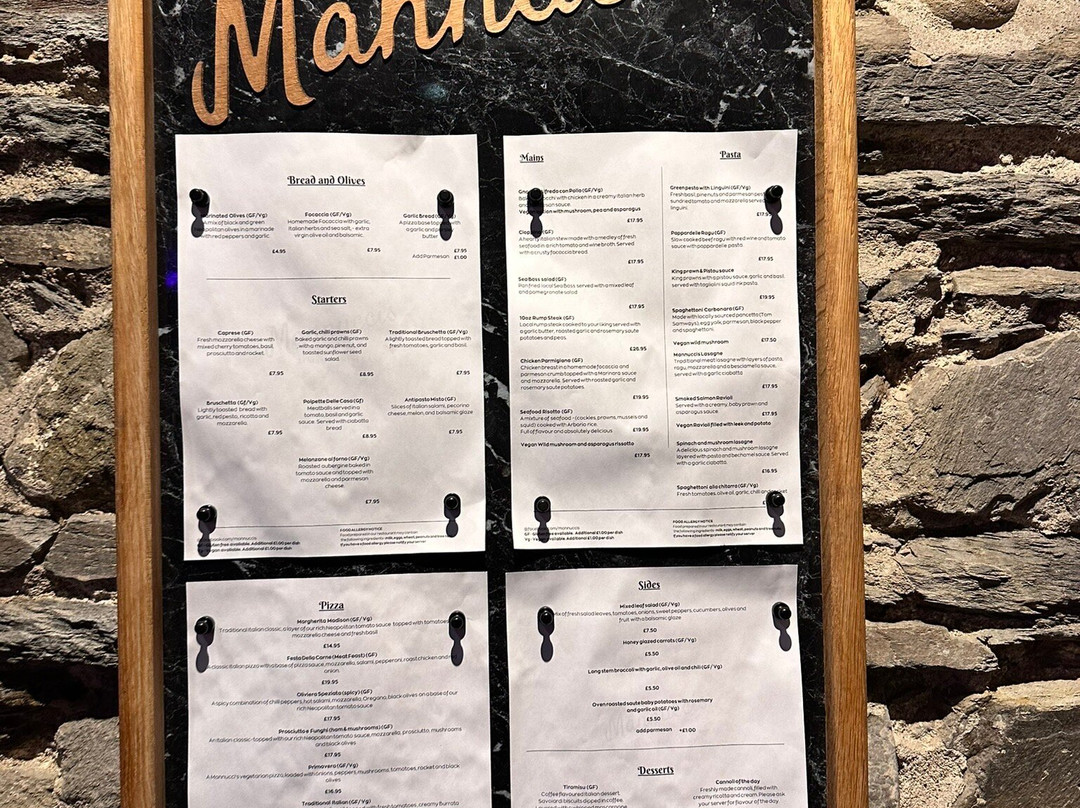 Bread and Olives
Marinated Olives (GF/Vg)
mix of black and green
olives in a marinade
with red peppers and garlic.
£4.95
Focaccia (GF/Vg)
Homemade Focaccia with garlic,
Italian herbs and sea salt, - extra
virgin olive oil and balsamic.
£7.95
Garlic Bread
A pizza base topped with
a garlic and
butter
£7.95
Add Parmesan £1.00
Starters
Caprese (GF)
Fresh mozzarella cheese with
mixed cherry tomatoes, basil,
prosciutto and rocket.
£7.95
Garlic, chilli prawns (GF)
baked garlic and chilli prawns
with a mango, pine nut, and
toasted sunflower seed
salad.
£8.95
Traditional Bruschetta (GF/Vg)
A lightly toasted bread topped with
fresh tomatoes, garlic and basil.
£7.95
Bruschetta (GF/Vg)
Lightly toasted bread with
garlic, red pesto, ricotta and
mozzarella.
£7.95
Polpette Della Casa (Gf)
Meatballs served in a
tomato, basil and garlic
sauce. Served with ciabatta
bread
£8.95
Antipasto Misto (GF)
Slices of Italian salami, pecorino
cheese, melon, and balsamic glaze
£7.95
Melanzane al forno (GF/Vg)
Roasted aubergine baked in
tomato sauce and topped with
mozzarella and parmesan
cheese.
£7.95
FOOD ALLERGY NOTICE
Mains
Alfredo con Pollo (GF/Vg)
with chicken in a creamy Italian herb
sauce.
with mushroom, pea and asparagus
£17.95
A hearty Italian stew made with a medley of fresh
seafood in a rich tomato and wine broth. Served
with a crusty focaccia bread.
£17.95
Sea Bass salad (GF)
Pan fried local Sea Bass served with a mixed leaf
and pomegranate salad.
£17.95
10oz Rump Steak (GF)
Local rump steak cooked to your liking served with
a garlic butter, roasted garlic and rosemary saute
potatoes and peas.
£26.95
Chicken Parmigiana (GF)
Chicken breast in a homemade focaccia and
parmesan crumb topped with a Marinara sauce
and mozzarella. Served with roasted garlic and
rosemary saute potatoes
£19.95
Seafood Risotto (GF)
A mixture of seafood - (cockles, prawns, mussels and
squid) cooked with Arborio rice.
Full of flavour and absolutely delicious. £19.95
Vegan Wild mushroom and asparagus rissotto
£17.95
Pasta
Green pesto with Linguini (GF/Vg)
Fresh basil, pine nuts and parmesan pesto
sundried tomato and mozzarella served
linguini.
Pappardelle Ragu (GF)
Slow cooked beef ragu with red wine and tomato
sauce with pappardelle pasta.
£17.95
King prawn & Pistou sauce
King prawns with a pistou sauce, garlic and basil,
served with tagliolini squid ink pasta.
£19.95
Spaghettoni Carbonara (GF)
Made with locally sourced pancetta (Tom
Samways), egg yolk, parmesan, black pepper
and spaghettoni.
£17.50
Vegan wild mushroom
Mannuccis Lasagne
Traditional meat lasagne with layers of pasta,
ragu, mozzarella and a besciamella sauce,
served with a garlic ciabatta
£17.95
Smoked Salmon Ravioli
Served with a creamy, baby prawn and
asparagus sauce
£17.95
Vegan Ravioli filled with leek and potato
Spinach and mushroom lasagne
A delicious spinach and mushroom lasagne
layered with pasta and bechamel sauce. Served
with a garlic ciabatta.
£16.95
Spaghettoni alla chitarra (GF/Vg)
Fresh tomatoes, olive oil, garlic, chilli and
FOOD ALLERGY NOTICE
Pizza
Margherita Madison (GF/Vg)
Traditional Italian classic, a layer of our rich Neapolitan tomato sauce topped with tomatoes,
mozzarella cheese and fresh basil
£14.95
Festa Della Carne (Meat Feast) (GF)
classic Italian pizza with a base of pizza sauce, mozzarella, salami, pepperoni, roast chicken and
onion.
£19.95
Oliviera Speziata (spicy) (GF)
A spicy combination of chilli peppers, hot salami, mozzarella, Oregano, black olives on a base of our
rich Neapolitan tomato sauce
£17.95
Prosciutto e Funghi (ham & mushrooms) (GF)
An Italian classic - topped with our rich Neapolitan tomato sauce, mozzarella, prosciutto, mushrooms
and black olives
£17.95
Primavera (GF/Vg)
A Mannucci's vegetarian pizza, loaded with onions, peppers, mushrooms, tomatoes, rocket and black
olives
£16.95
Traditional Italian (GF/Vg)
with fresh tomatoes, creamy Burrata
Sides
Mixed leaf salad (GF/Vg)
Mix of fresh salad leaves, tomatoes, onions, sweet peppers, cucumbers, olives and
fruit with a balsamic glaze
£7.50
Honey glazed carrots (GF/Vg)
£5.50
Long stem broccoli with garlic, olive oil and chilli (GF/Vg)
£5.50
Oven roasted saute baby potatoes with rosemary
and garlic oil (GF/Vg)
£5.50
add parmesan +£1.00
Desserts
Tiramisu (GF)
Coffee flavoured Italian dessert,
Savoiardi biscuits dipped in coffee
Cannoli of the day
Freshly made cannoli, filled with
creamy ricotta and cream. Please ask
your server for flavour of the day.